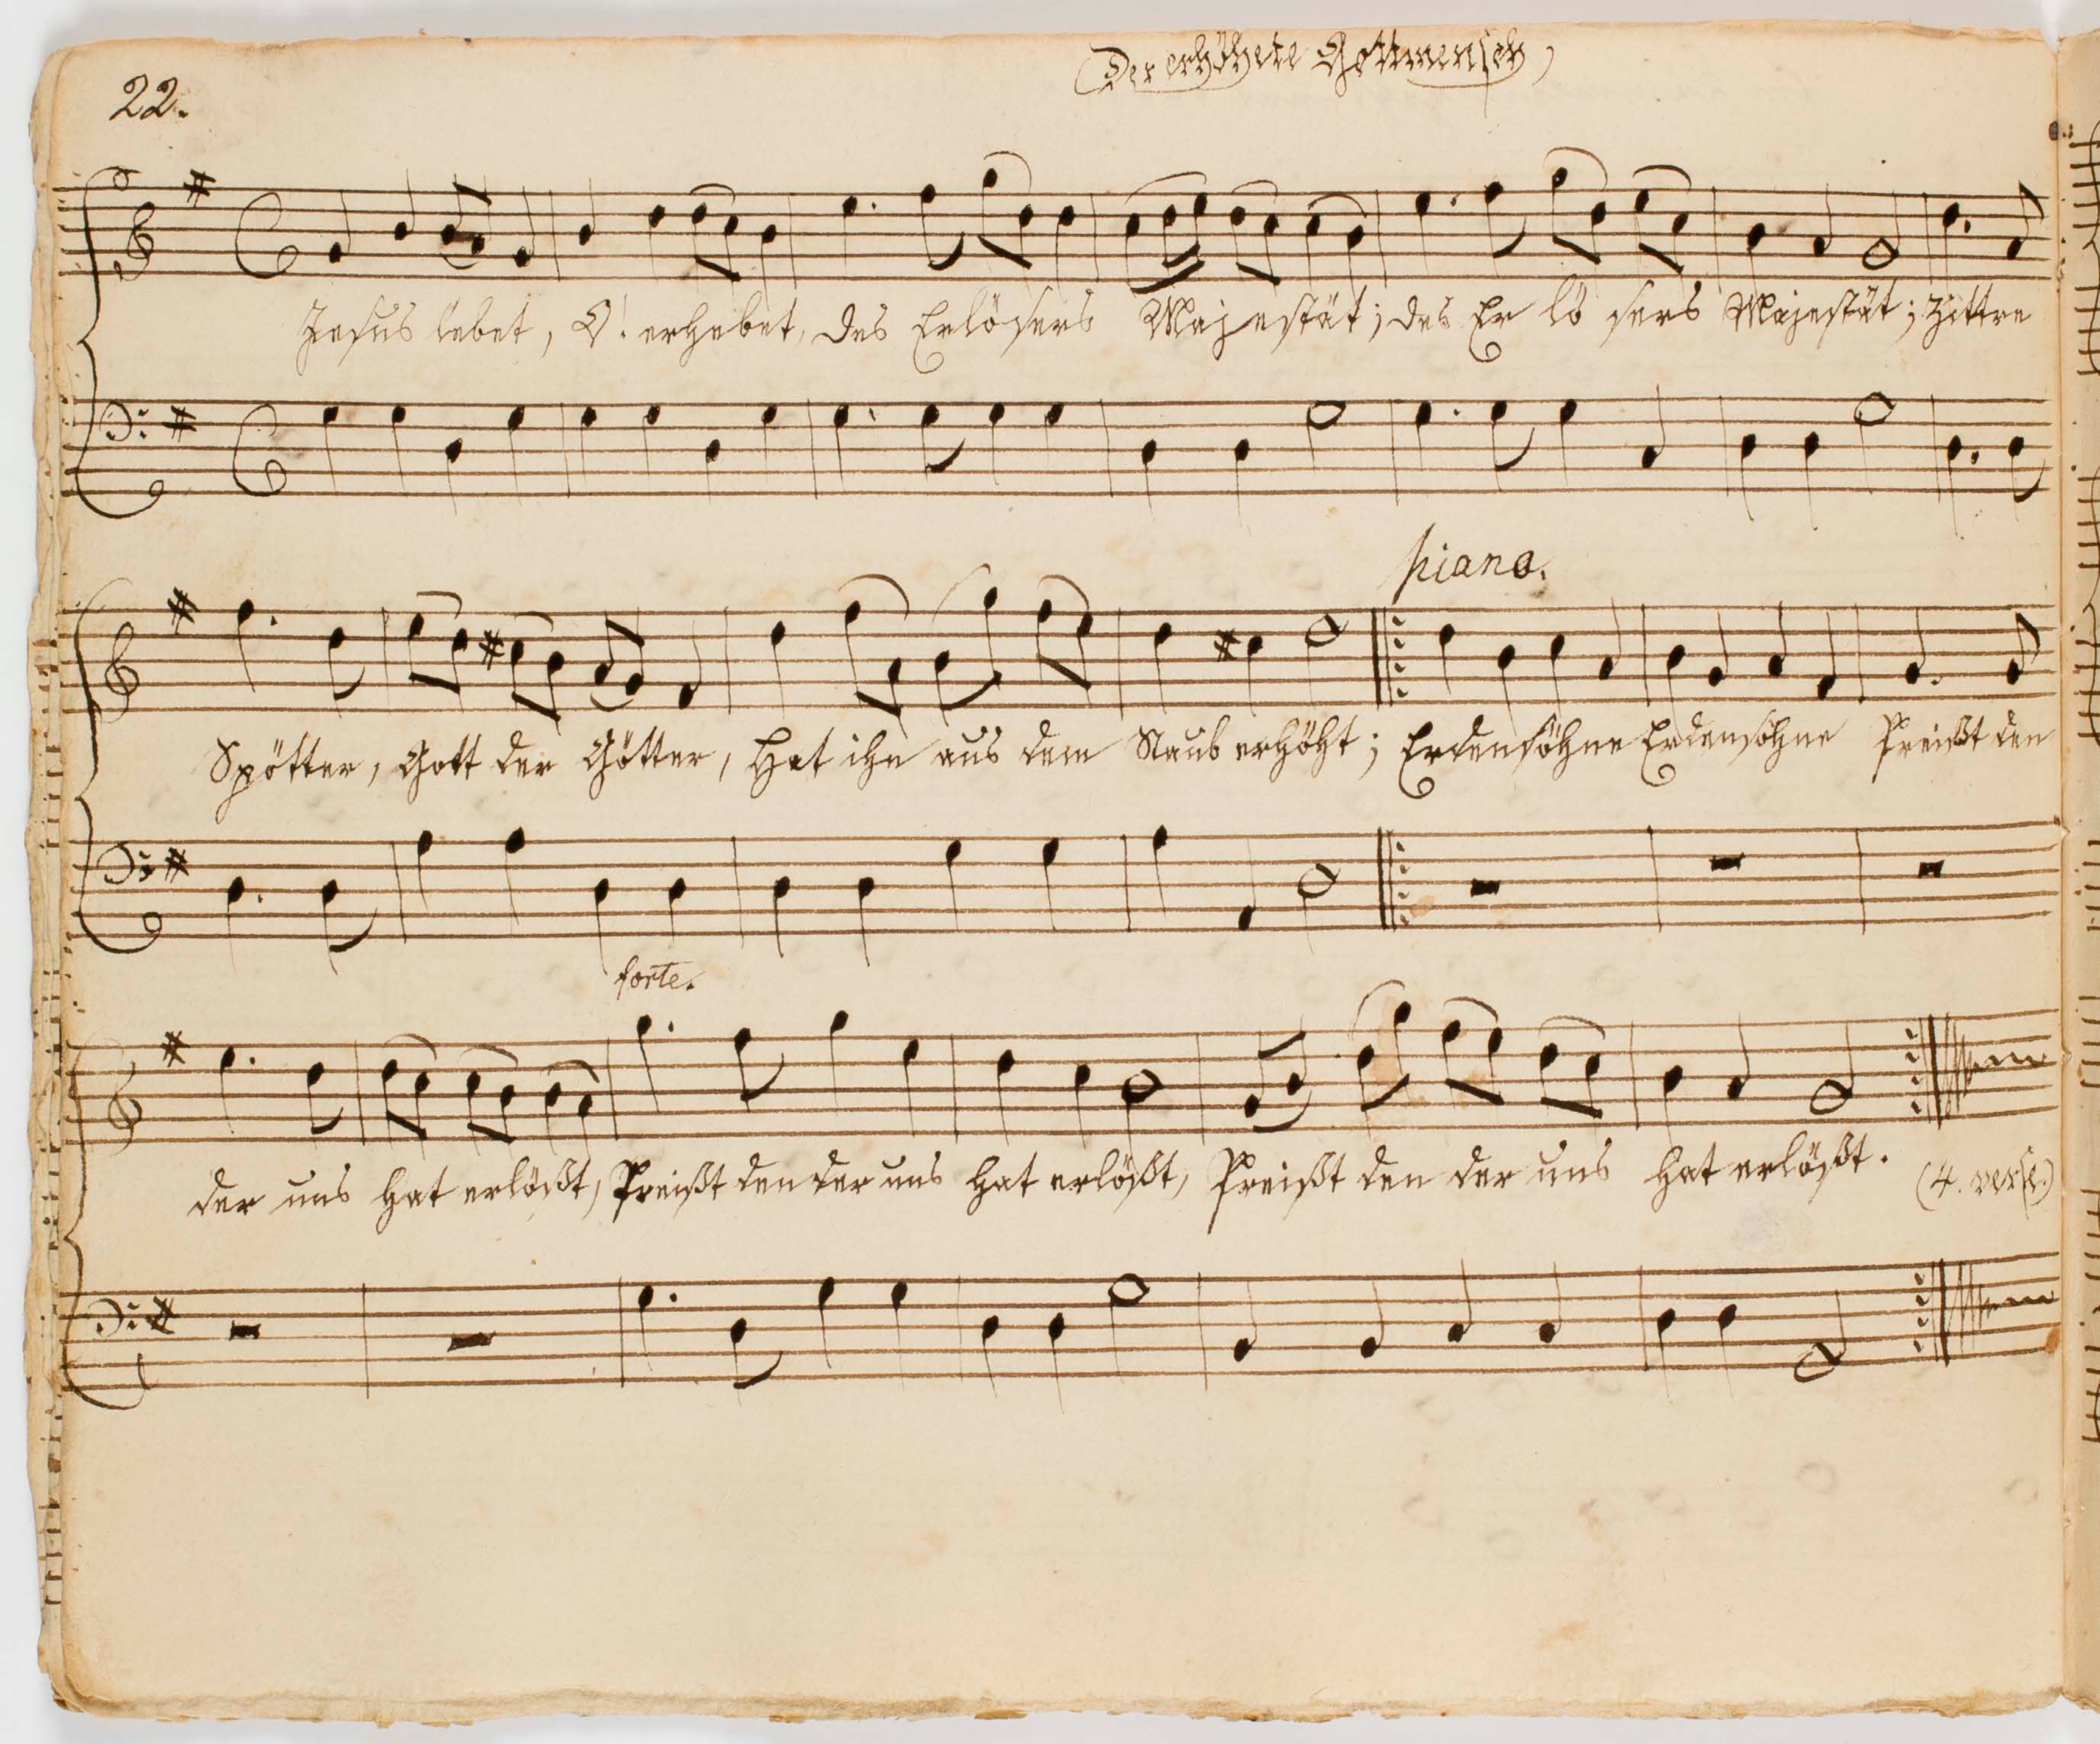 22.
(Der erhöhete Gottmensch)
Jesus lebet, O! erhebet, des Erlösers Majestät; des Er lö sers Majestät; Zittre
piano.
Spötter, Gott der Götter, Hat ihn aus dem Staub erhöht; Erdensöhne Erdensöhne Preißt den
forte.
der uns hat erlößt, Preißt den der uns hat erlößt, Preißt den der uns hat erlößt. (4. verse.)